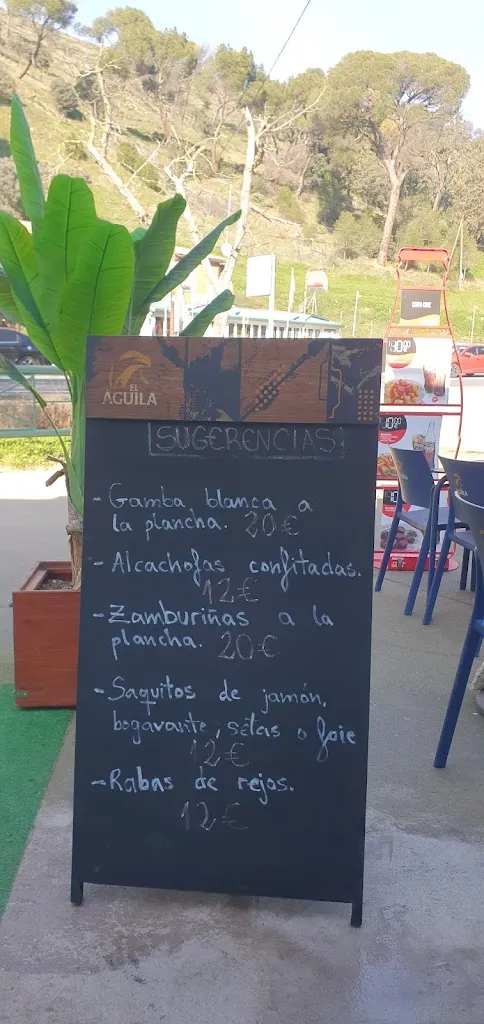 EL
AGUILA
SUGERENCIAS
- Gamba blanca a
la plancha. 20€
- Alcachofas confitadas.
12€
- Zamburiñas a la
plancha. 20€
- Saquitos de jamón,
bogavante, setas o foie
12€
- Rabas de rejos.
12€